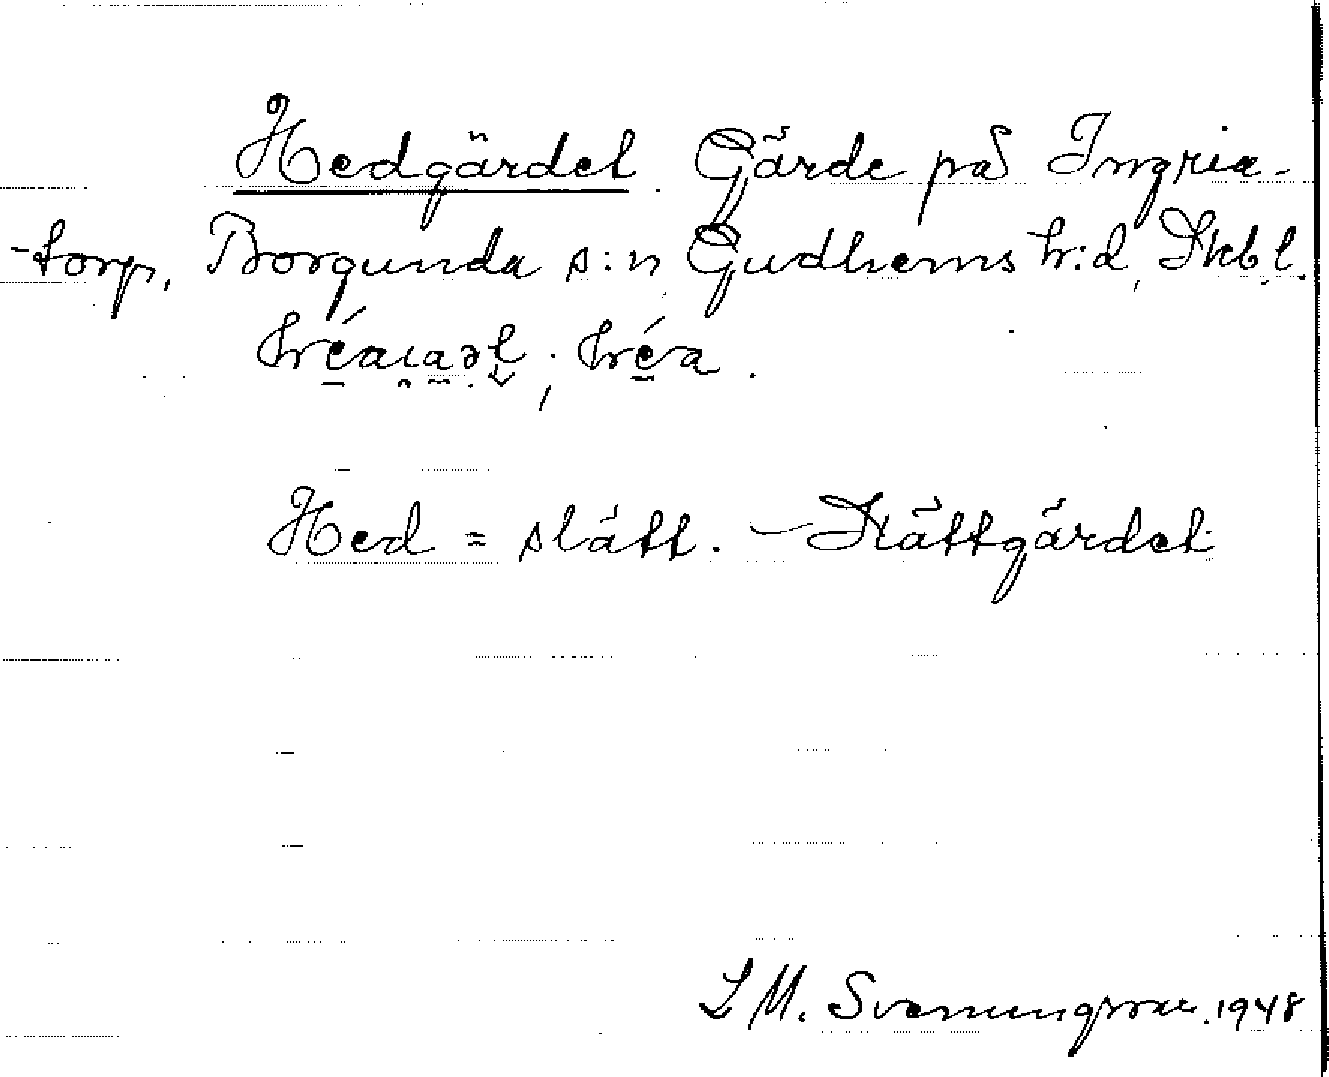 Hedgärdet. Gärde på Ingrie-
-torp, Borgunda s:n Gudhems h:d, Skbl.
Hed = slätt. – Slättgärdet
L M. Svenungsson. 1948